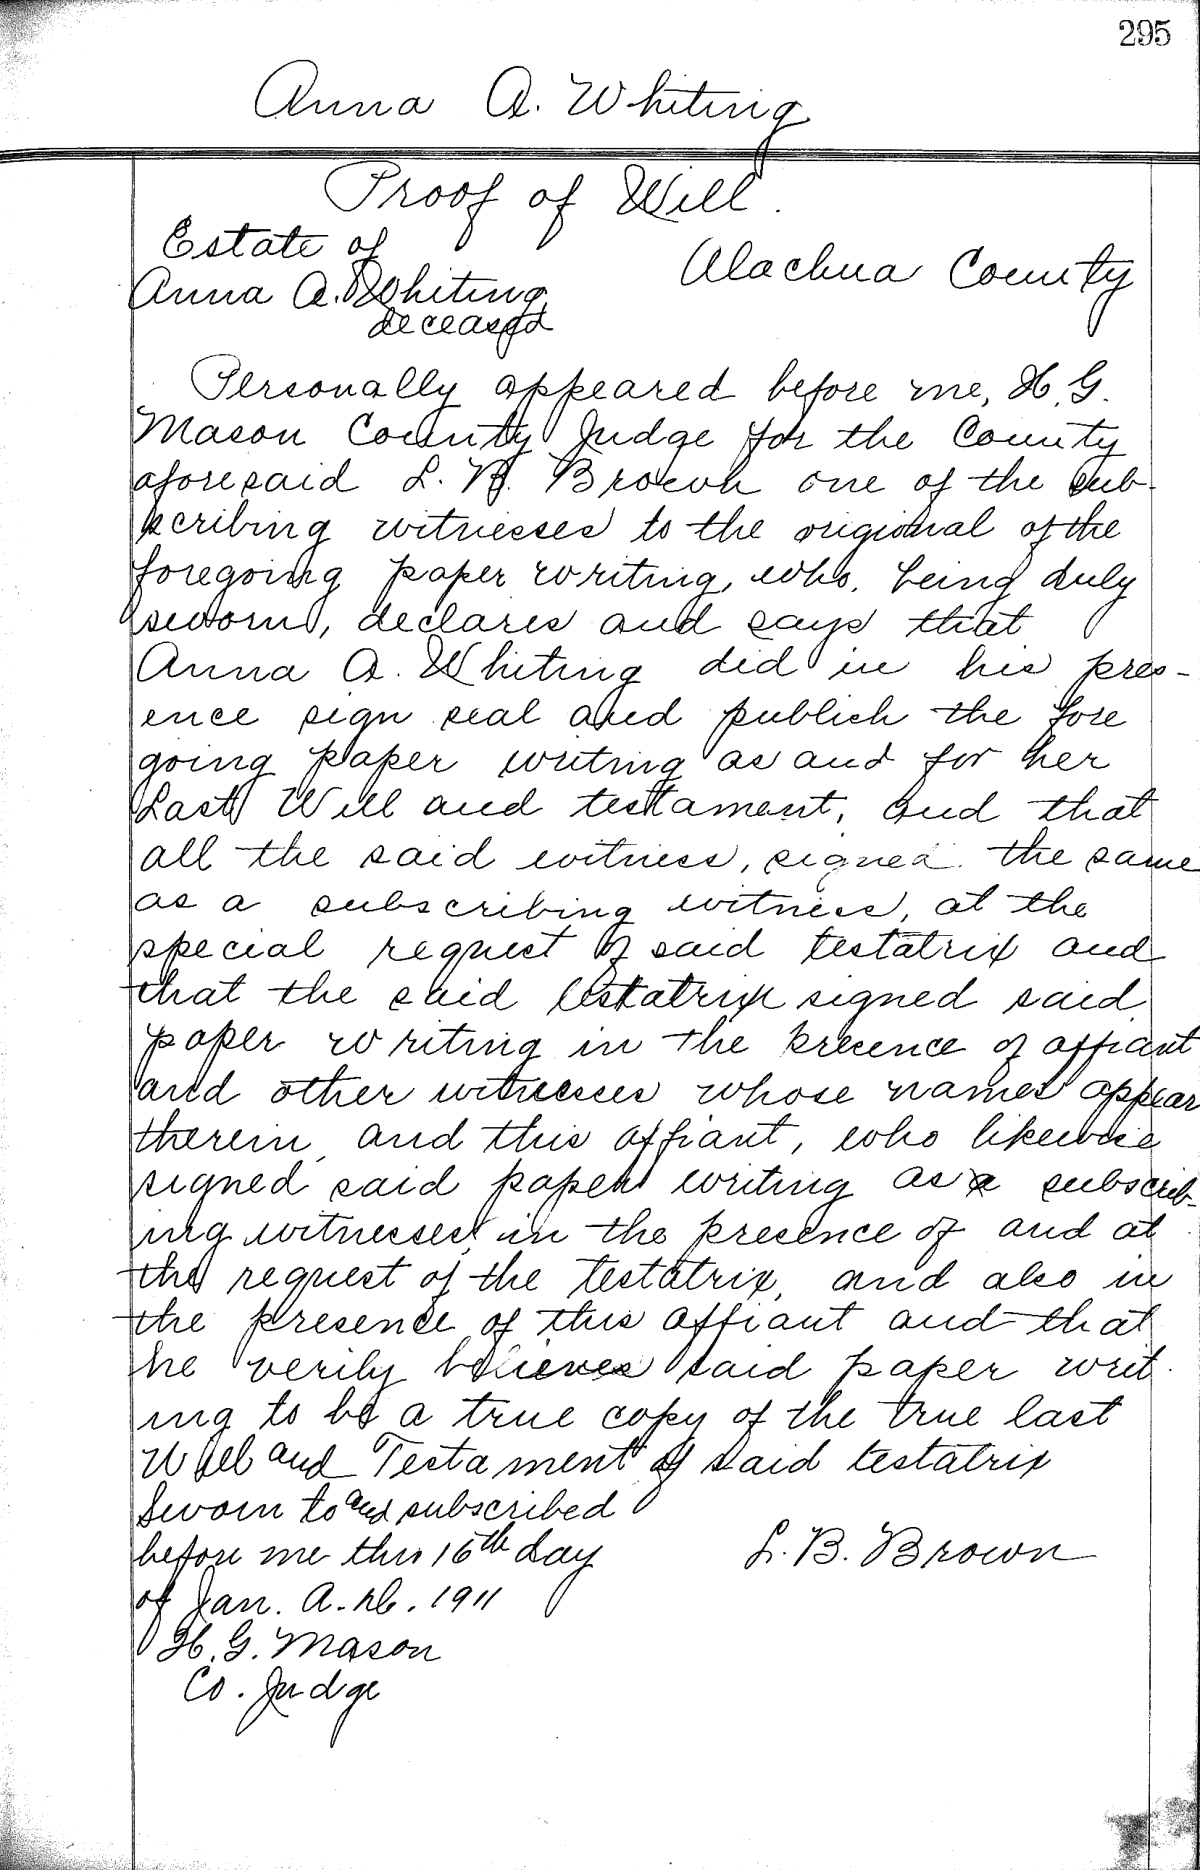 295
Anna A. Whiting
Proof of Will.
Estate of
Alachua County
Anna A. Whiting
deceased
Personally appeared before me, H. G.
Mason County Judge for the County
aforesaid L. B. Brown one of the sub-
scribing witnesses to the original of the
foregoing paper writing, who, being duly
sworn, declares and says that
Anna A. Whiting did in his pres-
ence sign seal and publish the fore
going paper writing as and for her
Last Will and testament, and that
all the said witness, signed the same
as a subscribing witness, at the
special request of said testatrix and
that the said testatrix signed said
paper writing in the presence of affiant
and other witnesses whose names appear
therein, and this affiant, who likewise
signed said paper writing as a subscrib-
ing witnesses, in the presence of and at
the request of the testatrix, and also in
the presence of this affiant and that
he verily believes said paper writ-
ing to be a true copy of the true last
Will and Testament of said testatrix
Sworn to and subscribed
before me this 16th day
L. B. Brown
of Jan. A. D. 1911
H. G. Mason
Co. Judge